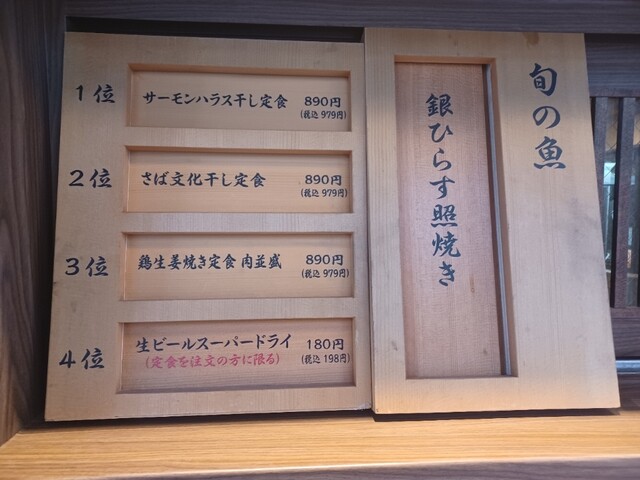 1位
サーモンハラス干し定食 890円
(税込 979円)
2位
さば文化干し定食 890円
(税込 979円)
3位
鶏生姜焼き定食 肉並盛 890円
(税込 979円)
4位
生ビールスーパードライ 180円
(定食を注文の方に限る) (税込 198円)
旬の魚
銀ひらす照焼き